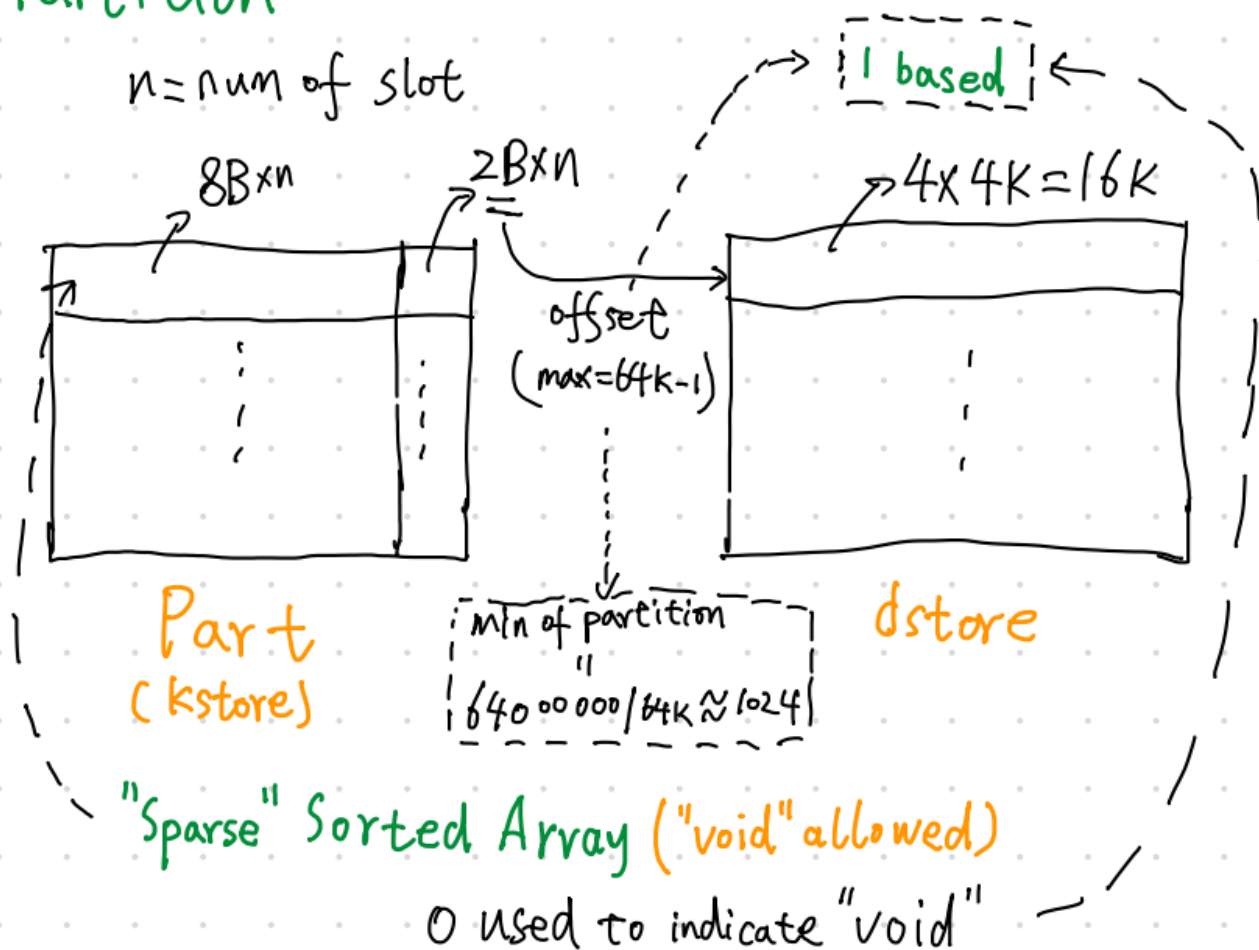 n=num of slot
1 based
8B×n
2B×n
4×4K=16K
offset
(max=64K-1)
Part
(kstore)
min of partition
"
64000000/64K≈1024
dstore
"Sparse" Sorted Array ("void" allowed)
0 used to indicate "void"